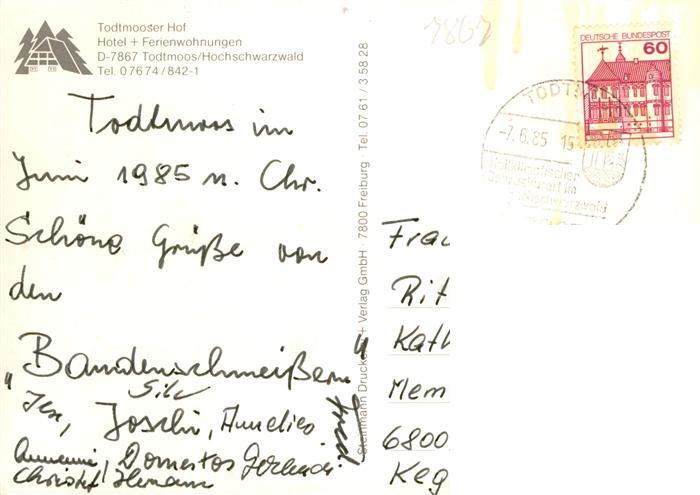 Todtmooser Hof
Hotel + Ferienwohnungen
D-7867 Todtmoos/Hochschwarzwald
Tel. 07674/842-1
7867
DEUTSCHE BUNDESPOST
60
-7.6.85 15
Heilklimatischer
Jahreskurort im
Todtmoos im
Juni 1985 n. Chr.
Schöne Grüße von
den
"Bandenschmeißern"
Silv
Joschi, Annelies
Domestos Gerlinde
Christof Hermann
Fred
Steinmann Druck + Verlag GmbH · 7800 Freiburg · Tel. 07 61 / 3 58 28
Frau
Rit
Kath
Mem
6800
Keg